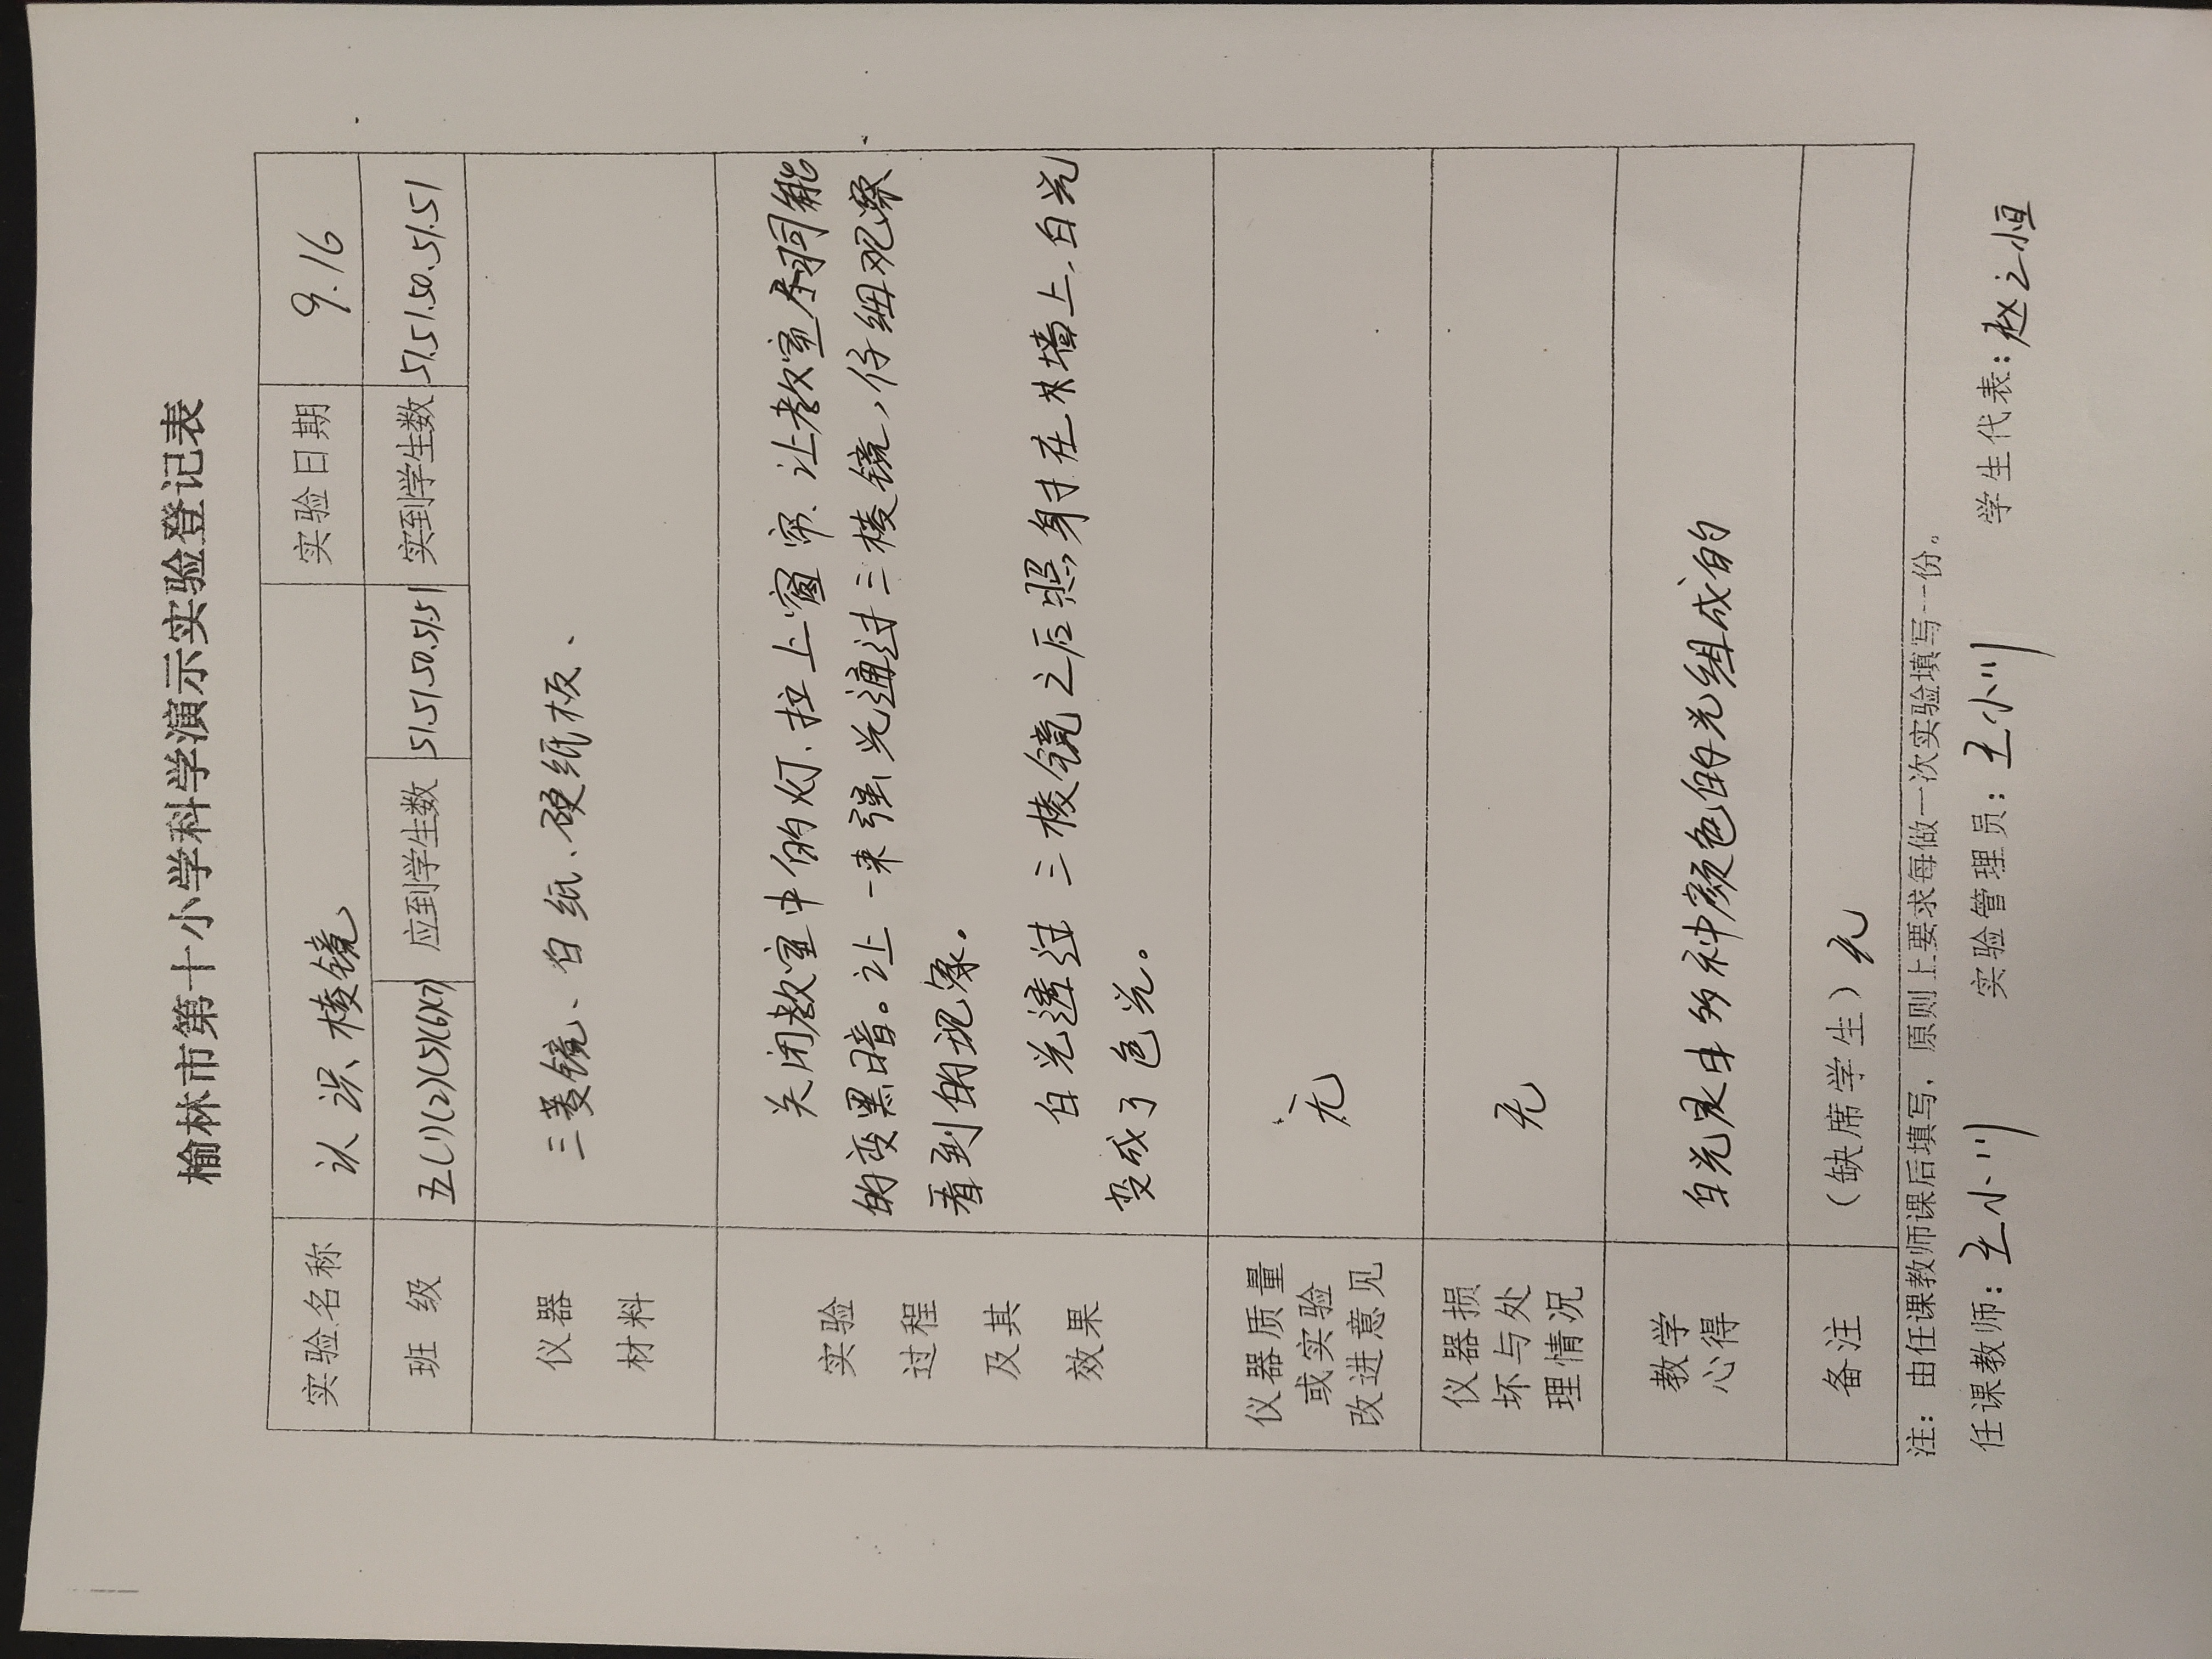 榆林市第十小学科学演示实验登记表
实验名称 认识棱镜 实验日期 9.16
班 级 五(1)(2)(5)(6)(7) 应到学生数 51.51.50.51.51 实到学生数 51.51.50.51.51
仪器
材料
三菱镜、白纸、硬纸板、
实验
过程
及其
效果
关闭教室中的灯、拉上窗帘、让教室尽可能
的变黑暗。让一束强光通过三棱镜,仔细观察
看到的现象。
白光透过三棱镜之后照射在墙上,白光
变成了色光。
仪器质量
或实验
改进意见
无
仪器损
坏与处
理情况
无
教学
心得
白光是由多种颜色的光组成的
备注
(缺席学生)无
注:由任课教师课后填写,原则上要求每做一次实验填写一份。
任课教师:王小川 实验管理员:王小川 学生代表:赵之恒